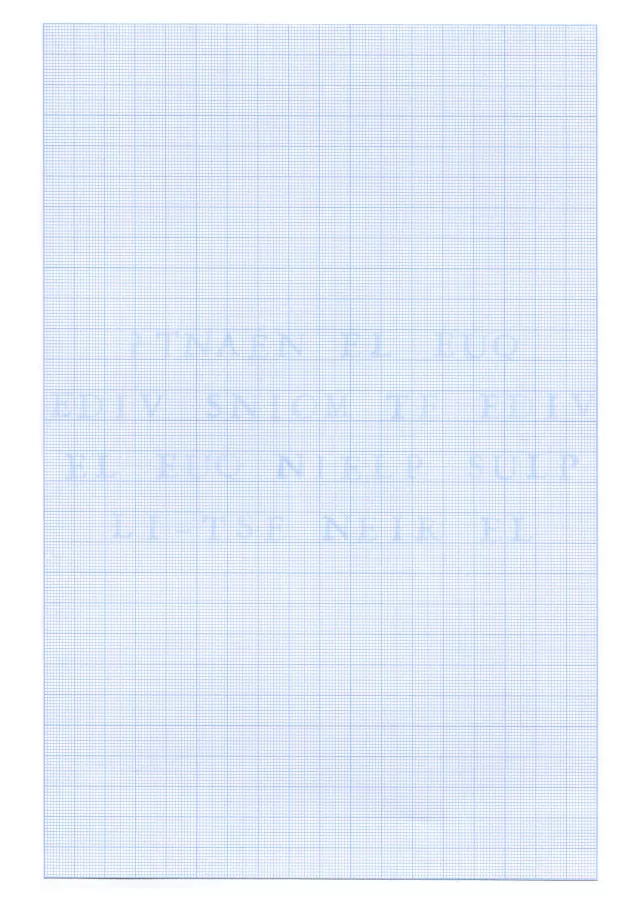 ?TNAÉN EL EUQ
EDIV SNIOM TE EDIV
EL EUQ NIELP SULP
LI-TSE NEIR EL